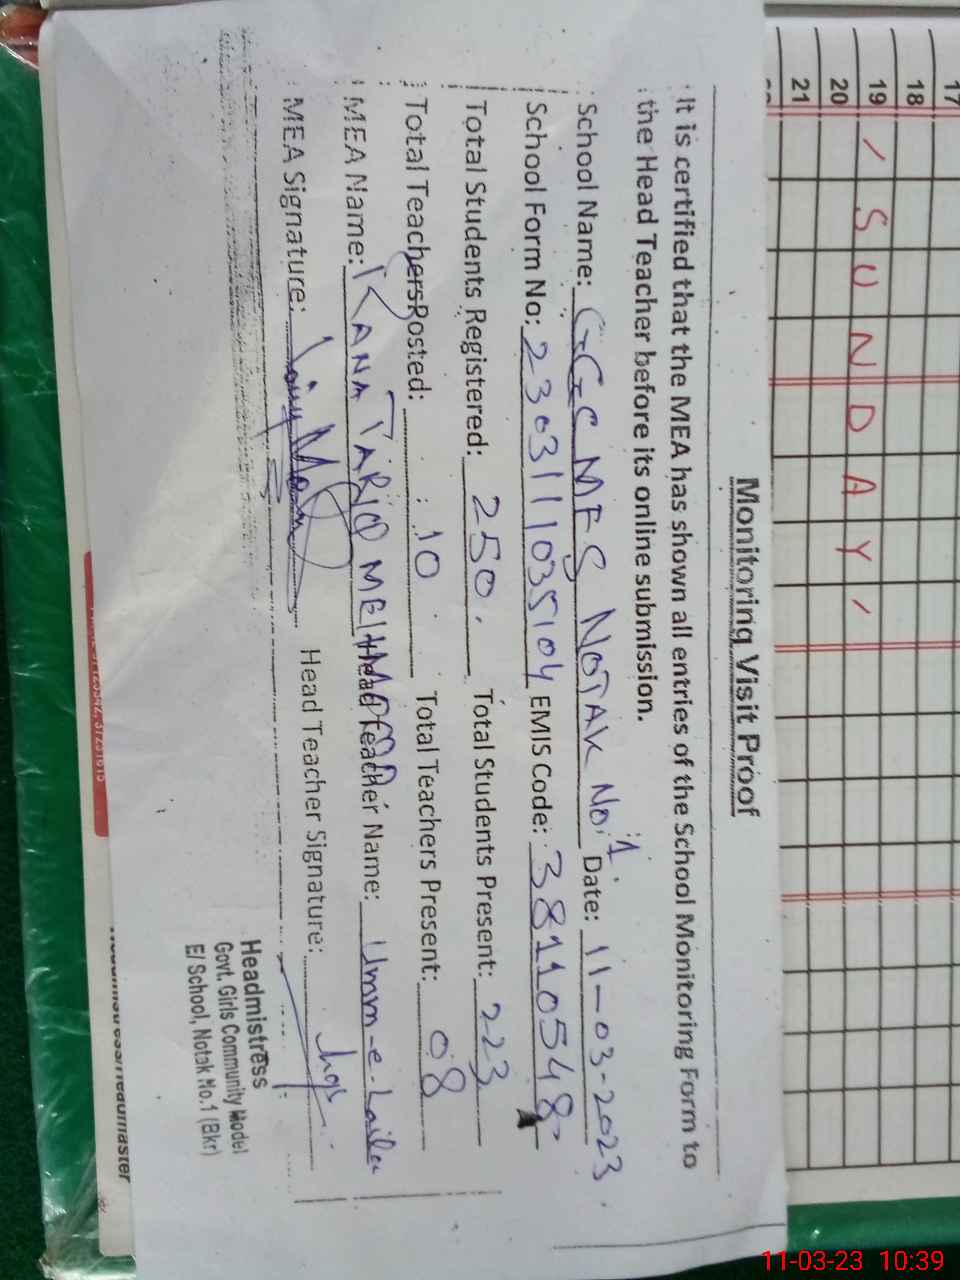 17
18
19 / S U N D A Y /
20
21
Monitoring Visit Proof
It is certified that the MEA has shown all entries of the School Monitoring Form to
the Head Teacher before its online submission.
School Name: GGCMES NOTAK No.1 Date: 11-03-2023
School Form No: 2303111035104 EMIS Code: 38110548
Total Students Registered: 250. Total Students Present: 223
Total Teachers Posted: 10 Total Teachers Present: 08
MEA Name: RANA TARIQ MEHMOOD Head Teacher Name: Umm-e-Laila
MEA Signature: Head Teacher Signature:
Headmistress
Govt. Girls Community Model
E/ School, Notak No.1 (Bkr)
Headmistress/Headmaster
11-03-23 10:39